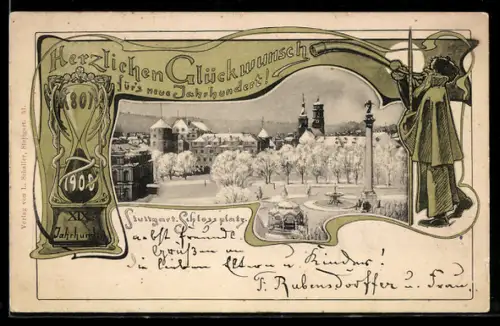 Herzlichen Glückwunsch
für's neue Jahrhundert!
1908
XIX
Jahrhund
Stuttgart. Schlossplatz.
Verlag von L. Schaller, Stuttgart.
Freunde
Grüßen an
die lieben Eltern u. Kinder!
F. Rubensdörffer u. Frau.